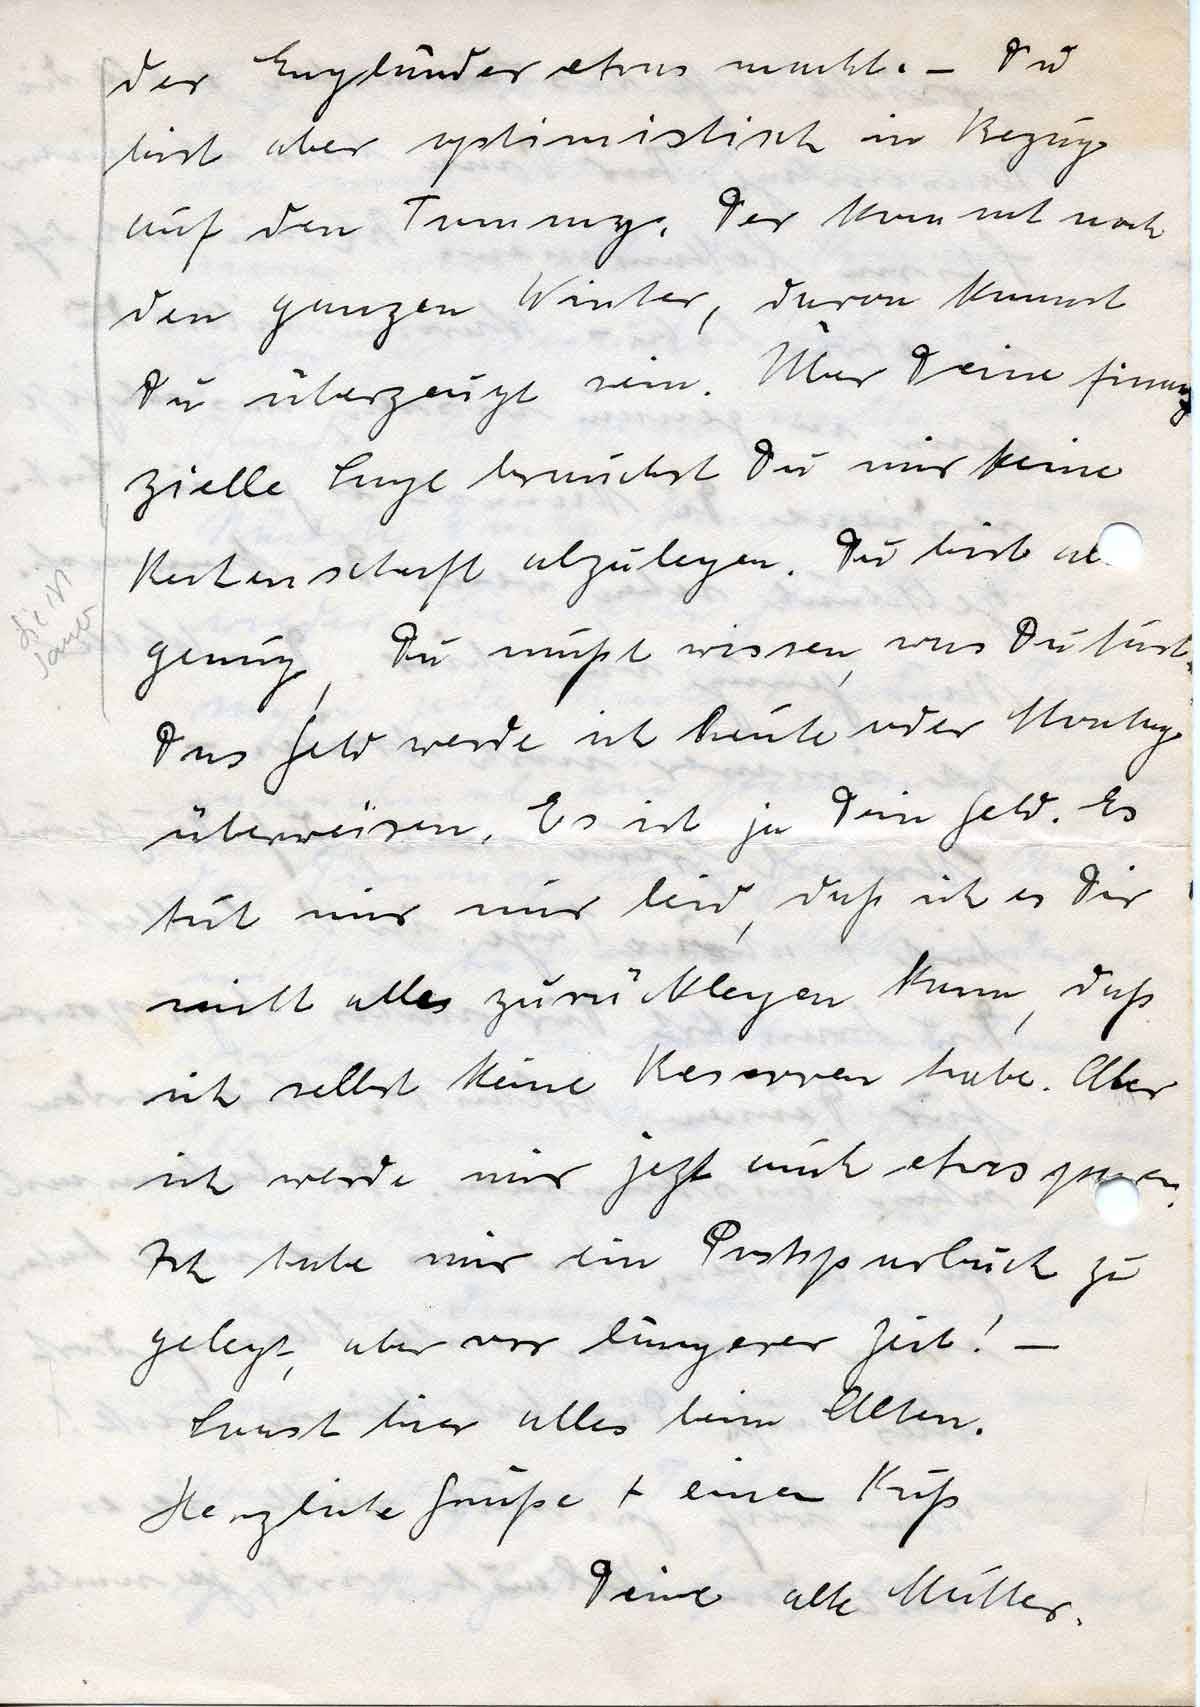 der Engländer etwas macht. – Du
bist aber optimistisch in Bezug
auf den Tommy. Der kommt noch
den ganzen Winter, davon kannst
Du überzeugt sein. Über Deine finan
zielle Lage brauchst Du mir keine
Rechenschaft abzulegen. Du bist al
genug, Du mußt wissen, was Du tust.
Das Geld werde ich heute oder Montag
überweisen. Es ist ja Dein Geld. Es
tut mir nur leid, daß ich es Dir
nicht alles zurücklegen kann, daß
ich selbst keine Reserven habe. Aber
ich werde mir jetzt auch etwas sparen.
Ich habe mir ein Postsparbuch zu
gelegt, aber vor längerer Zeit! –
Sonst hier alles beim Alten.
Herzliche Grüße + einen Kuß
Deine alte Mutter.